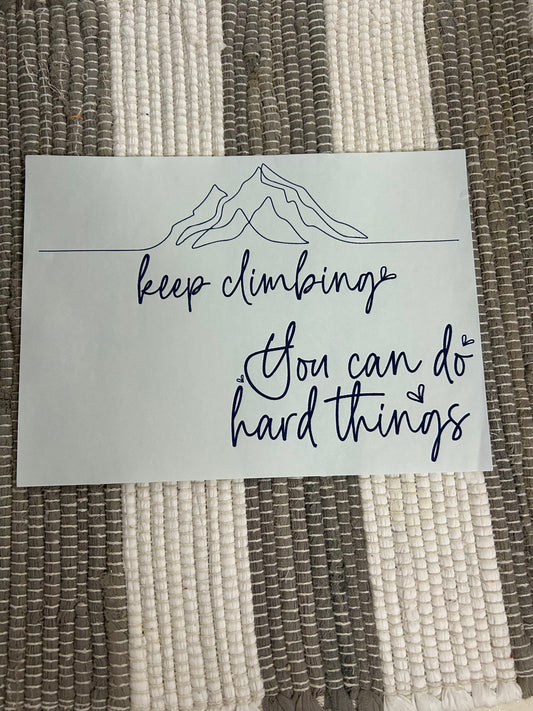 keep climbing
You can do
hard things